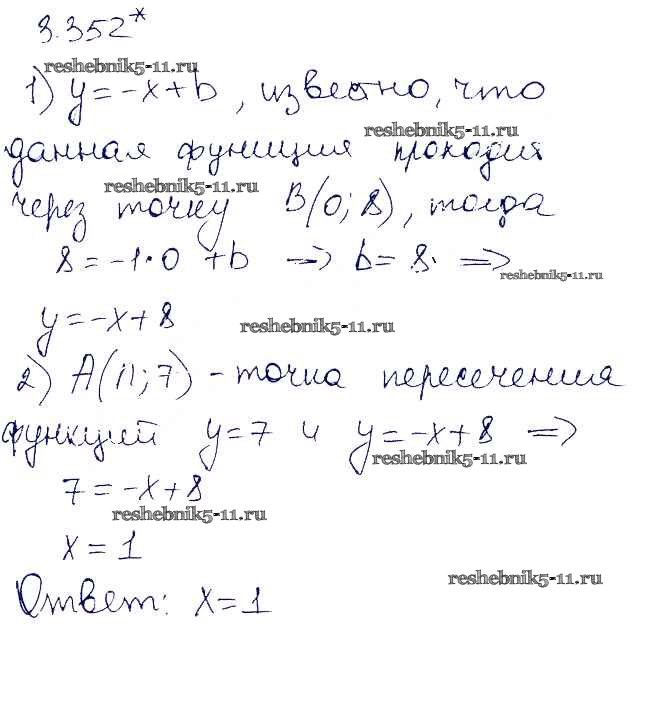 3.352*
reshebnik5-11.ru
1) y = -x + b, известно, что
reshebnik5-11.ru
данная функция проходит
reshebnik5-11.ru
через точку B(0; 8), тогда
8 = -1·0 + b => b = 8. =>
reshebnik5-11.ru
y = -x + 8
reshebnik5-11.ru
2) A(n; 7) - точка пересечения
функций y = 7 и y = -x + 8 =>
reshebnik5-11.ru
7 = -x + 8
reshebnik5-11.ru
x = 1
reshebnik5-11.ru
Ответ: x = 1